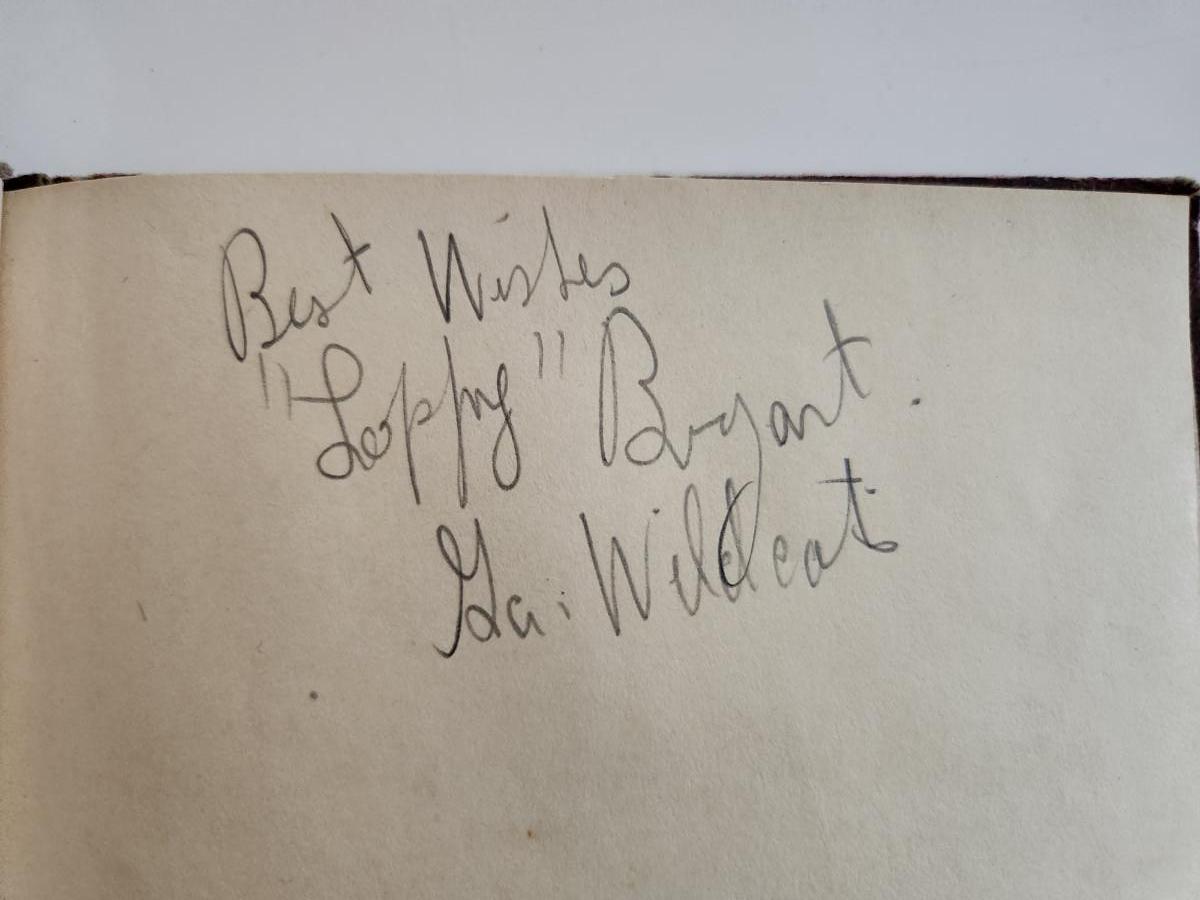 Best Wishes
"Loppy" Bryant.
Ga. Wildcats